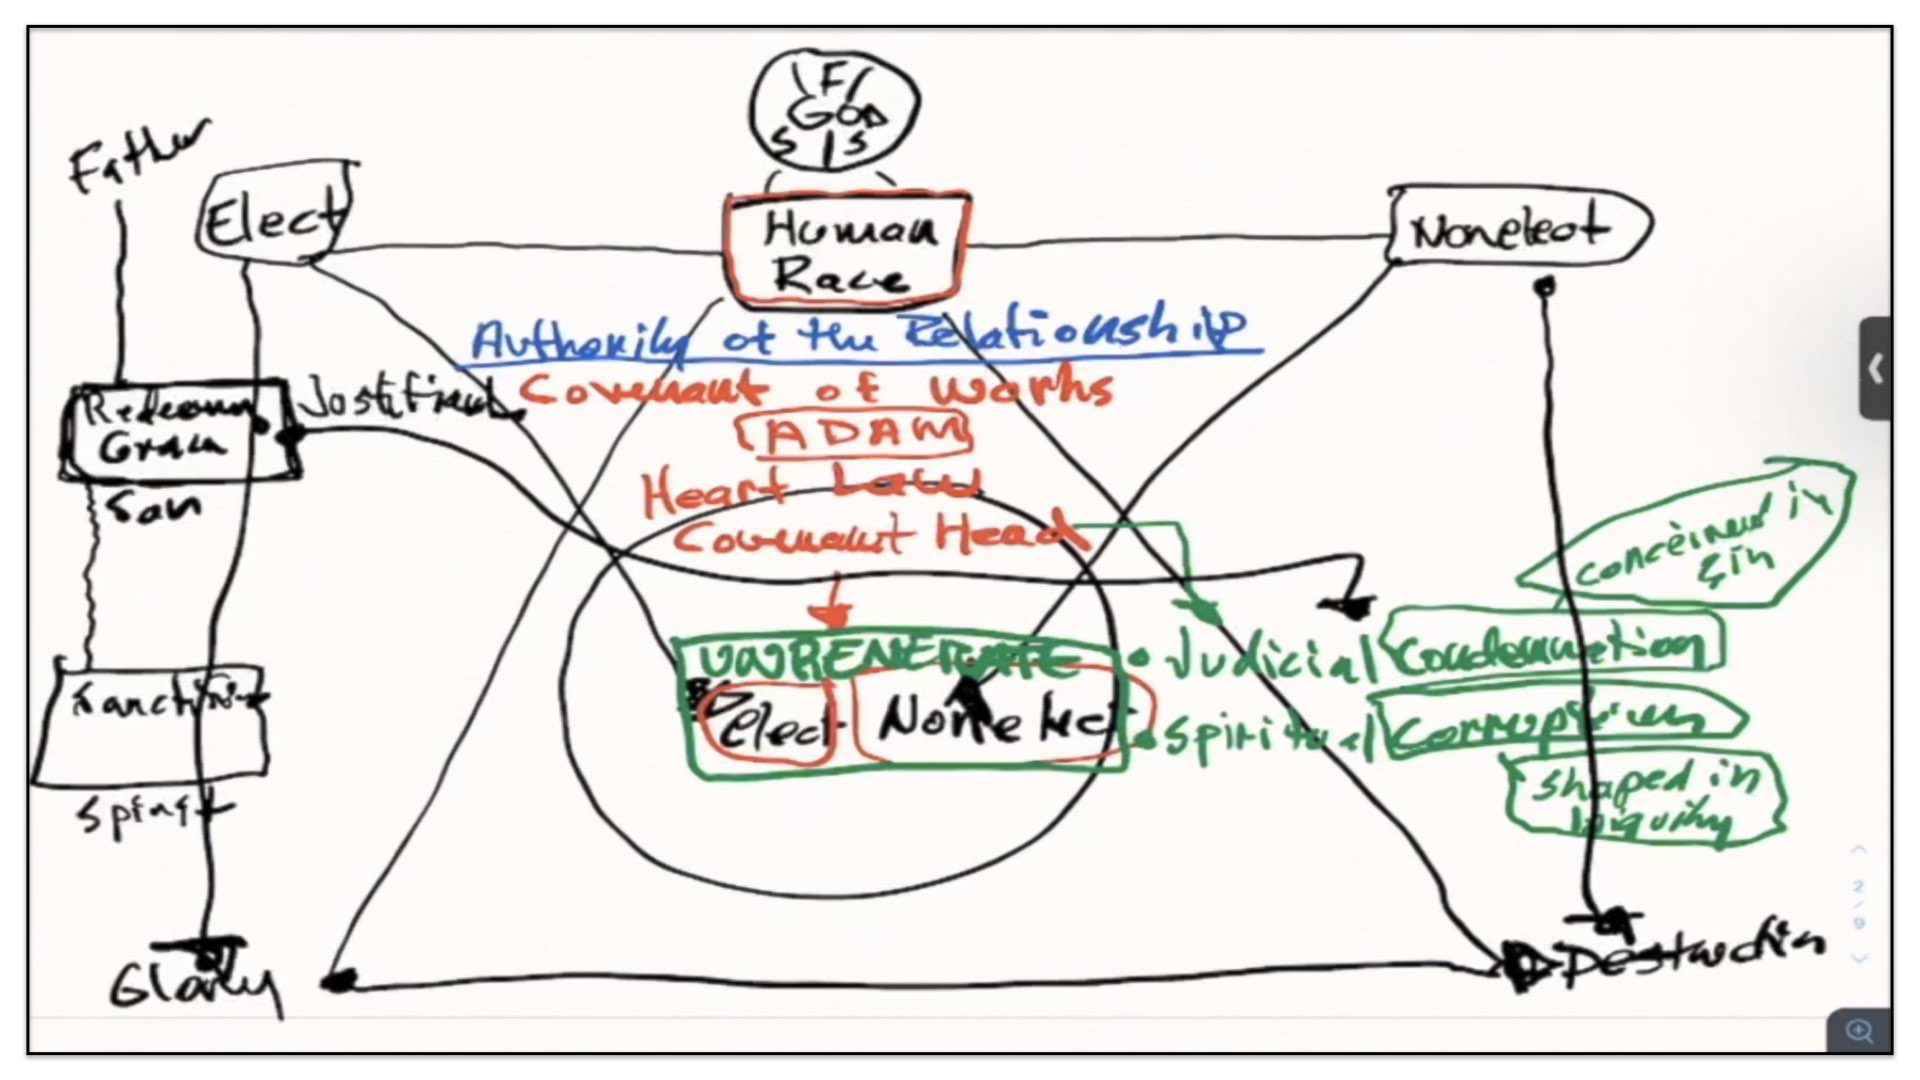 F
GOD
S S
Father
Elect
Human
Race
Nonelect
Authority of the Relationship
Covenant of Works
Justified
ADAM
Grace
Son
Heart Law
Covenant Head
conceived in
sin
UNREGENERATE
Judicial Condemnation
Elect
None lect
Spiritual Corruption
Spirit
shaped in
iniquity
Glory
Destruction
2/9